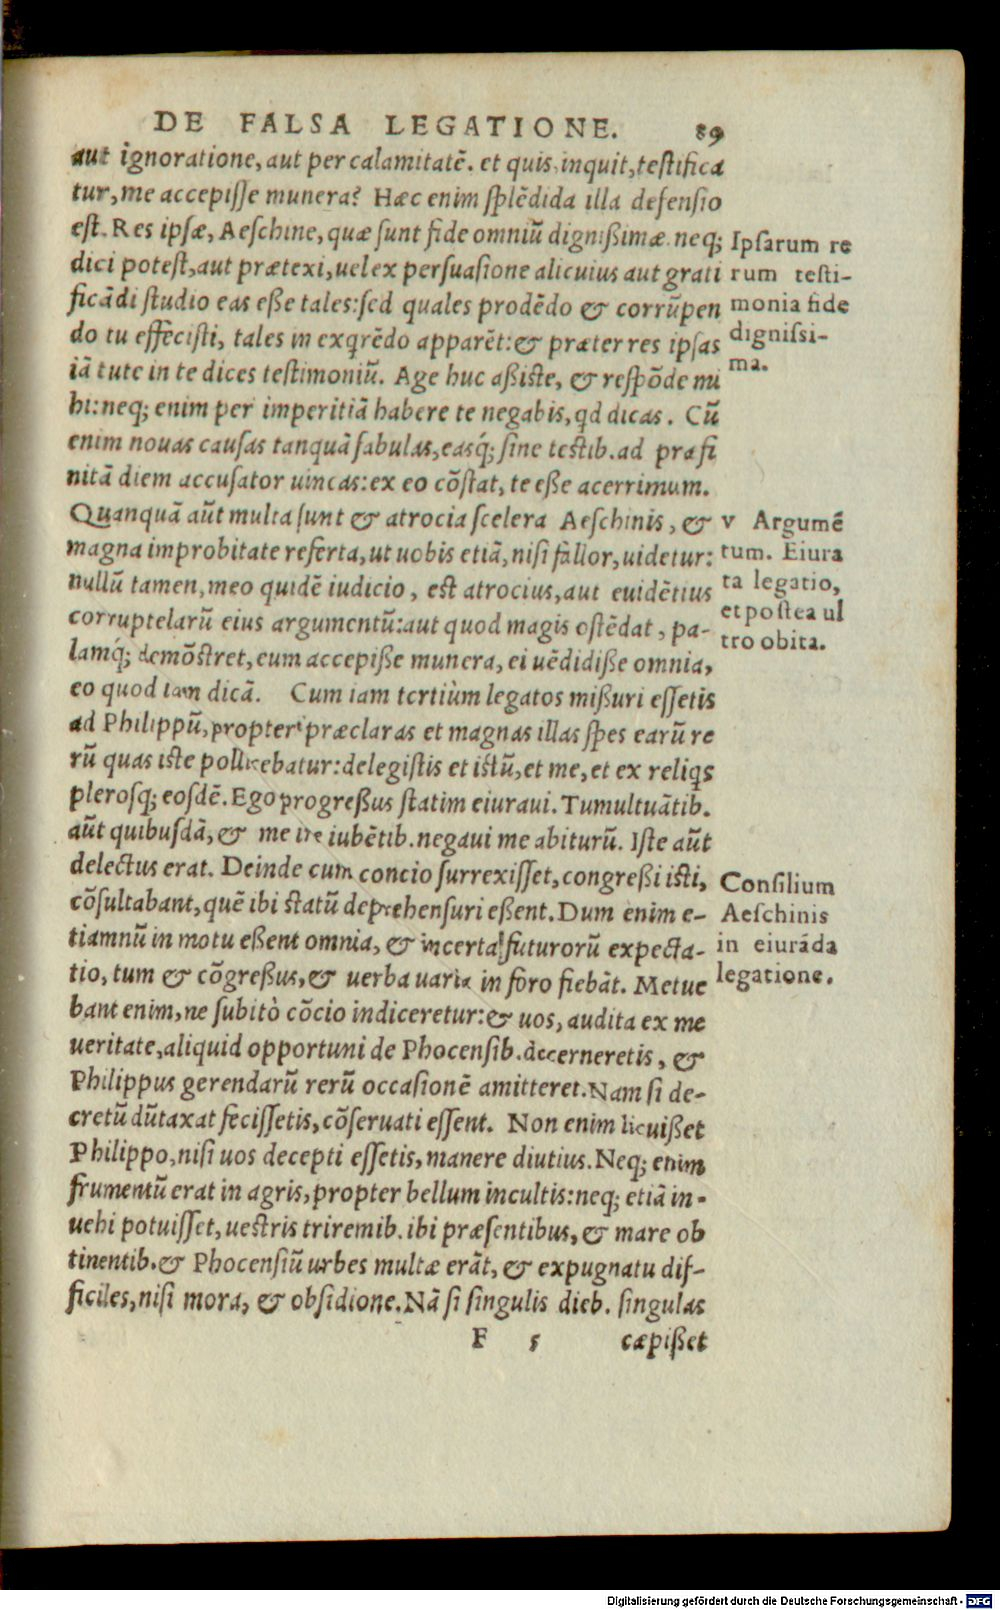 DE FALSA LEGATIONE. 89
aut ignoratione, aut per calamitatē. et quis, inquit, testifica
tur, me accepisse munera? Hæc enim splēdida illa defensio
est. Res ipsæ, Aeschine, quæ sunt fide omniū dignißimæ. neq;
dici potest, aut prætexi, uel ex persuasione alicuius aut grati
ficādi studio eas eße tales: sed quales prodēdo & corrūpen
do tu effecisti, tales in exqrēdo apparēt: & præter res ipsas
iā tute in te dices testimoniū. Age huc aßiste, & respōde mi
hi: neq; enim per imperitiā habere te negabis, qd dicas. Cū
enim nouas causas tanquā fabulas, easq́; sine testib. ad præfi
nitā diem accusator uincas: ex eo cōstat, te eße acerrimum.
Quanquā aūt multa sunt & atrocia scelera Aeschinis, &
magna improbitate referta, ut uobis etiā, nisi fallor, uidetur:
nullū tamen, meo quidē iudicio, est atrocius, aut euidētius
corruptelarū eius argumentū: aut quod magis ostēdat, pa-
lamq́; demōstret, eum accepiße munera, ei uēdidiße omnia,
eo quod iam dicā. Cum iam tertiùm legatos mißuri essetis
ad Philippū, propter præclaras et magnas illas spes earū re
rū quas iste pollicebatur: delegistis et istū, et me, et ex reliqs
plerosq; eosdē. Ego progreßus statim eiuraui. Tumultuātib.
aūt quibusdā, & me ire iubētib. negaui me abiturū. Iste aūt
delectus erat. Deinde cum concio surrexisset, congreßi isti,
cōsultabant, quē ibi statū deprehensuri eßent. Dum enim e-
tiamnū in motu eßent omnia, & incerta futurorū expecta-
tio, tum & cōgreßus, & uerba uaria in foro fiebāt. Metue
bant enim, ne subitò cōcio indiceretur: & uos, audita ex me
ueritate, aliquid opportuni de Phocensib. decerneretis, &
Philippus gerendarū rerū occasionē amitteret. Nam si de-
cretū dūtaxat fecissetis, cōseruati essent. Non enim licuißet
Philippo, nisi uos decepti essetis, manere diutius. Neq; enim
frumentū erat in agris, propter bellum incultis: neq; etiā in-
uehi potuisset, uestris triremib. ibi præsentibus, & mare ob
tinentib. & Phocensiū urbes multæ erāt, & expugnatu dif-
ficiles, nisi mora, & obsidione. Nā si singulis dieb. singulas
F 5 cæpißet
Ipsarum re
rum testi-
monia fide
dignissi-
ma.
v Argumē
tum. Eiura
ta legatio,
et postea ul
tro obita.
Consilium
Aeschinis
in eiurāda
legatione.
Digitalisierung gefördert durch die Deutsche Forschungsgemeinschaft - DFG